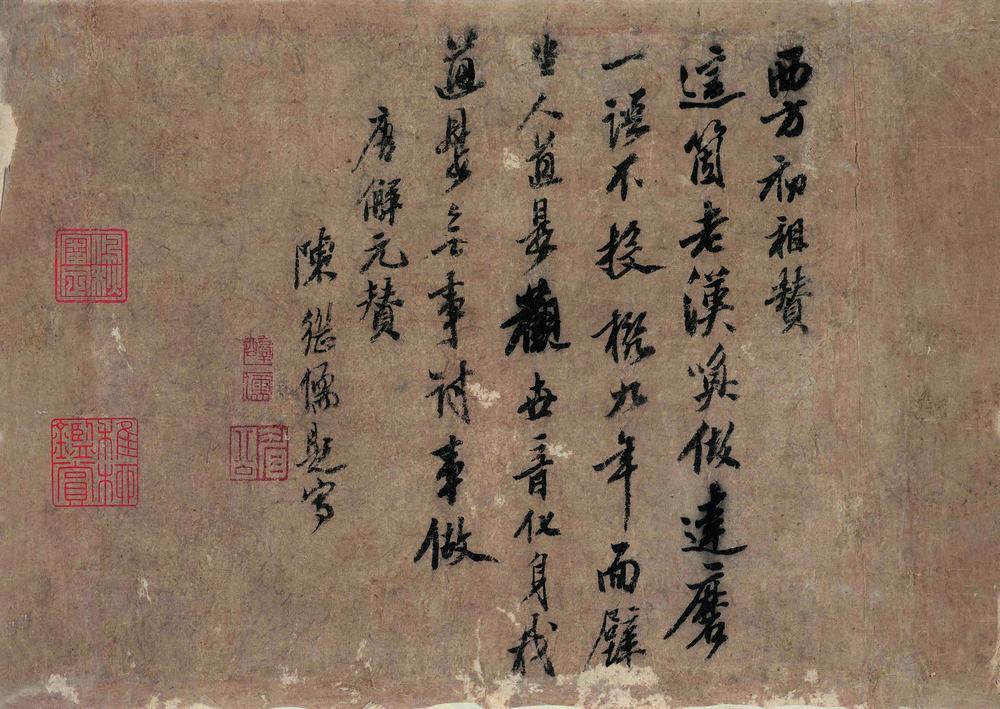 西方初祖贊
這箇老漢喚做達磨
一語不投機九年面壁
坐人道是觀世音化身我
道是無事討事做
唐解元贊
陳繼儒題寫
眉公